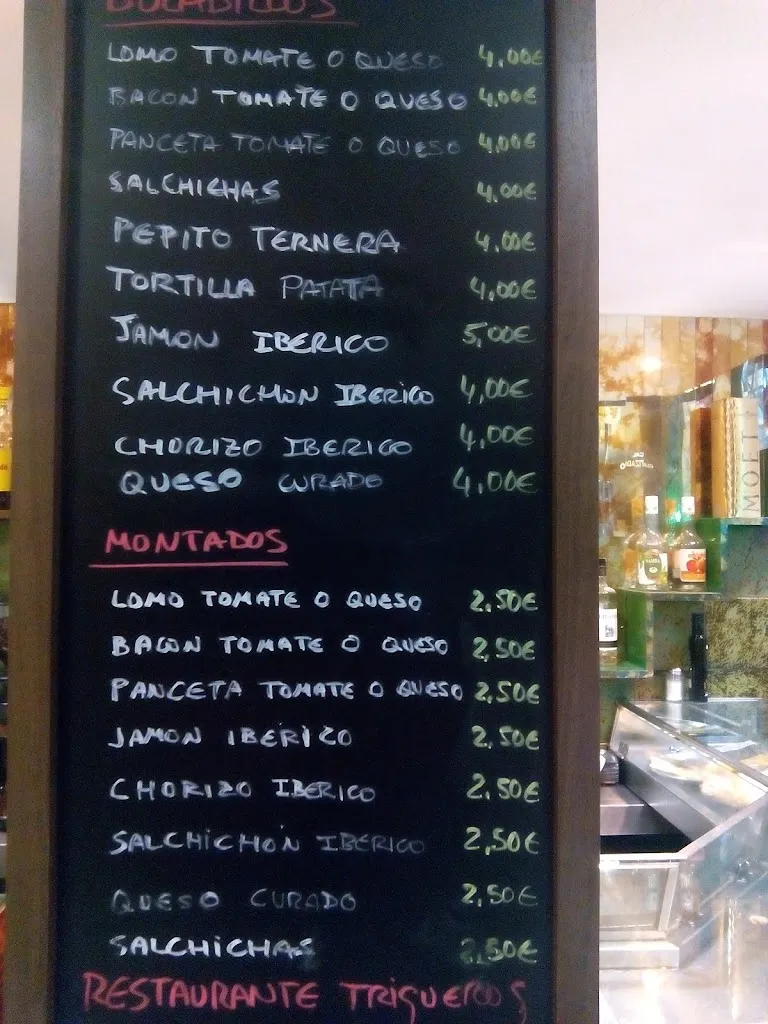 BOCADILLOS
LOMO TOMATE O QUESO 4,00€
BACON TOMATE O QUESO 4,00€
PANCETA TOMATE O QUESO 4,00€
SALCHICHAS 4,00€
PEPITO TERNERA 4,00€
TORTILLA PATATA 4,00€
JAMON IBERICO 5,00€
SALCHICHON IBERICO 4,00€
CHORIZO IBERICO 4,00€
QUESO CURADO 4,00€
MONTADOS
LOMO TOMATE O QUESO 2,50€
BACON TOMATE O QUESO 2,50€
PANCETA TOMATE O QUESO 2,50€
JAMON IBERICO 2,50€
CHORIZO IBERICO 2,50€
SALCHICHON IBERICO 2,50€
QUESO CURADO 2,50€
SALCHICHAS 2,50€
RESTAURANTE TRIGUEROS
MOET